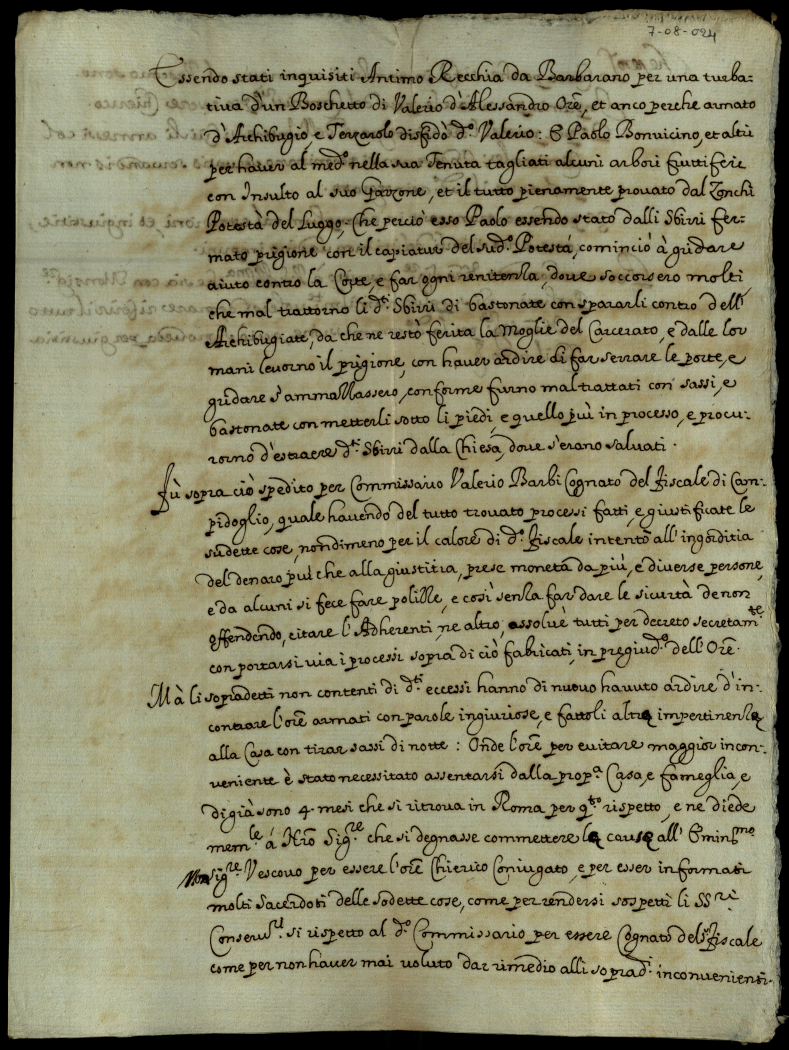 7-08-024
Essendo stati inquisiti Antimo Recchia da Barbarano per una turba-
tiua d'un Boschetto di Valerio d'Alessandro Ore, et anco perche armato
d'Archibugio, e Terzarolo disfidò d.º Valerio: E Paolo Bonuicino, et altri
per hauer al med.º nella sua Tenuta tagliati alcuni arbori fruttiferi
con Insulto al suo Garzone, et il tutto pienamente prouato dal Zonchi
Potestà del luogo. Che perciò esso Paolo essendo stato dalli Sbirri fer-
mato prigione con il capiatur del sud.º Potestà, cominciò à gridare
aiuto contro la Corte, e far ogni renitenza, doue soccorsero molti
che mal trattorno li d.ti Sbirri di bastonate con spararli contro dell'
Archibugiate, da che ne restò ferita la Moglie del Carcerato, e dalle lor
mani leuorno il prigione, con hauer ardire di far serrare le porte, e
gridare s'ammazzassero, conforme furno maltrattati con sassi, e
bastonate con metterli sotto li piedi, e quello più in processo, e procu-
rorno d'estraere d.ti Sbirri dalla Chiesa, doue s'erano saluati.
Fù sopra ciò spedito per Commissario Valerio Barbi Cognato del fiscale di Cam-
pidoglio, quale hauendo del tutto trouato processi fatti, e giustificate le
sudette cose, nondimeno per il calore di d.º fiscale intentò all'ingorditia
del denaro più che alla giustitia, prese moneta da più, e diuerse persone,
e da alcuni si fece fare polizze, e così senza far dare le sicurtà de non
offendendo, citare l'Adherenti, ne altro, assoluè tutti per decreto secretam.te
con portarsi uia i processi sopra di ciò fabricati, in pregiud.º dell'Ore.
Mà li sopradetti non contenti di d.ti eccessi hanno di nuouo hauuto ardire d'in-
contrare l'ore armati con parole ingiuriose, e fattoli altre impertinenze
alla Casa con tirar sassi di notte: Onde l'ore per euitare maggior incon-
ueniente è stato necessitato assentarsi dalla prop.a Casa, e fameglia, e
di già sono 4. mesi che si ritroua in Roma per q.to rispetto, e ne diede
mem.le à Nro Sig.re che si degnasse commettere le cause all' Emin.mo
Monsig.re Vescouo per essere l'ore Chierico Coniugato, e per esser informati
molti Sacerdoti delle sodette cose, come per rendersi sospetti li SS.ri
Conseru.ri si rispetto al d.º Commissario per essere Cognato del fiscale
come per non hauer mai uoluto dar rimedio alli soprad.i inconuenienti.